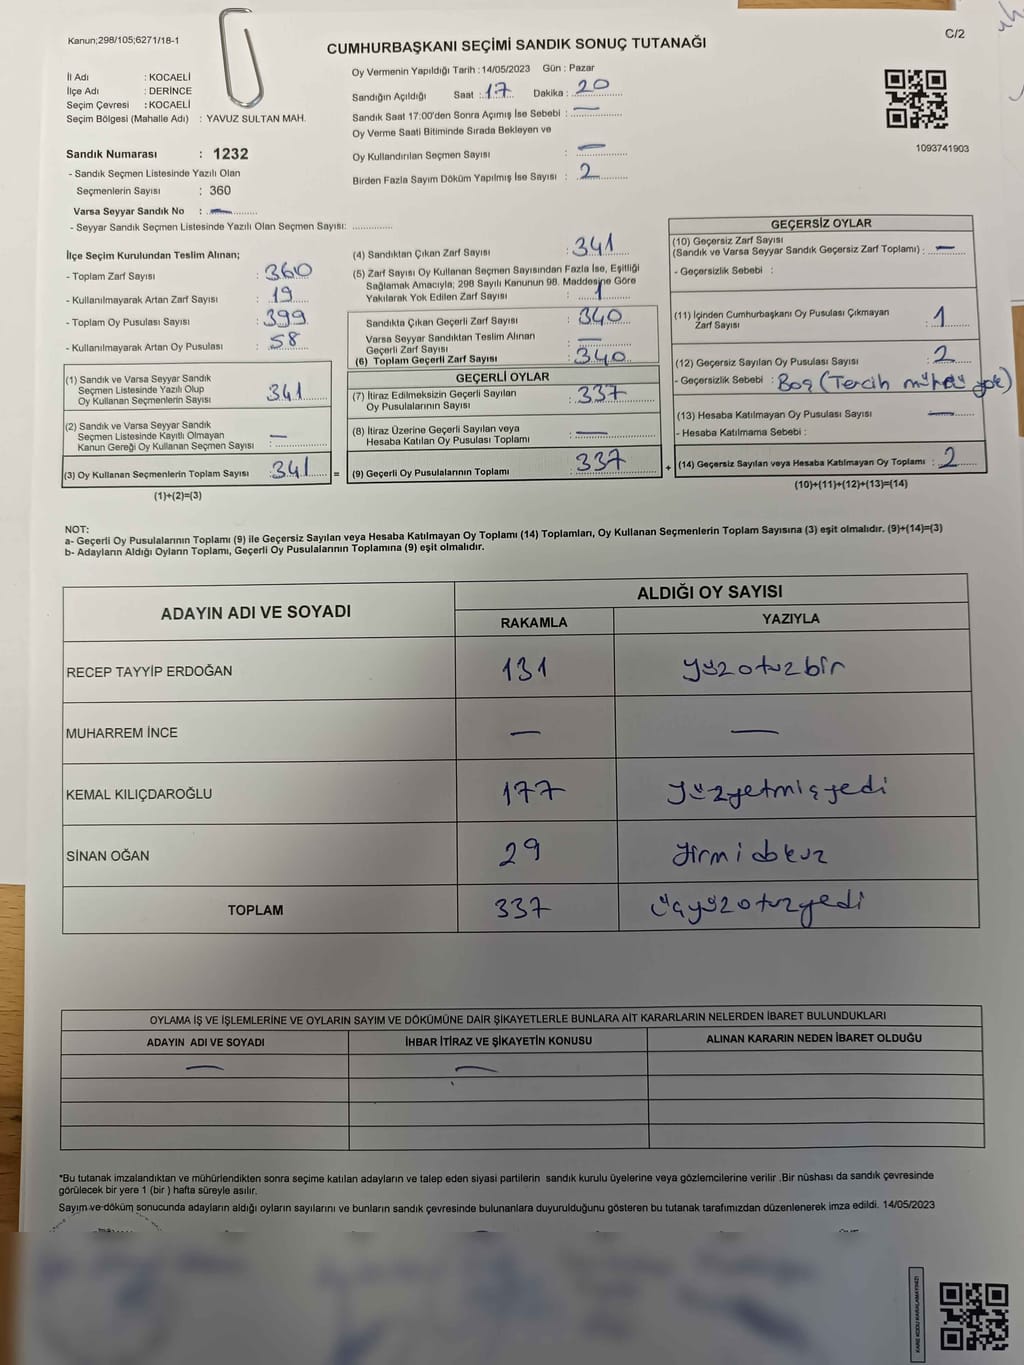 Kanun;298/105;6271/18-1
C/2
CUMHURBAŞKANI SEÇİMİ SANDIK SONUÇ TUTANAĞI
İl Adı : KOCAELİ
İlçe Adı : DERİNCE
Seçim Çevresi : KOCAELİ
Seçim Bölgesi (Mahalle Adı) : YAVUZ SULTAN MAH.
Sandık Numarası : 1232
- Sandık Seçmen Listesinde Yazılı Olan
Seçmenlerin Sayısı : 360
Varsa Seyyar Sandık No : —
- Seyyar Sandık Seçmen Listesinde Yazılı Olan Seçmen Sayısı: ..............
Oy Vermenin Yapıldığı Tarih : 14/05/2023 Gün : Pazar
Sandığın Açıldığı Saat : 17 Dakika : 20
Sandık Saat 17:00'den Sonra Açımış İse Sebebi : —
Oy Verme Saati Bitiminde Sırada Bekleyen ve
Oy Kullandırılan Seçmen Sayısı : —
Birden Fazla Sayım Döküm Yapılmış İse Sayısı : 2
1093741903
İlçe Seçim Kurulundan Teslim Alınan;
- Toplam Zarf Sayısı : 360
- Kullanılmayarak Artan Zarf Sayısı : 19
- Toplam Oy Pusulası Sayısı : 399
- Kullanılmayarak Artan Oy Pusulası : 58
(1) Sandık ve Varsa Seyyar Sandık
Seçmen Listesinde Yazılı Olup
Oy Kullanan Seçmenlerin Sayısı : 341
(2) Sandık ve Varsa Seyyar Sandık
Seçmen Listesinde Kayıtlı Olmayan
Kanun Gereği Oy Kullanan Seçmen Sayısı : —
(3) Oy Kullanan Seçmenlerin Toplam Sayısı : 341 =
(1)+(2)=(3)
(4) Sandıktan Çıkan Zarf Sayısı : 341
(5) Zarf Sayısı Oy Kullanan Seçmen Sayısından Fazla İse, Eşitliği
Sağlamak Amacıyla; 298 Sayılı Kanunun 98. Maddesine Göre
Yakılarak Yok Edilen Zarf Sayısı : 1
Sandıkta Çıkan Geçerli Zarf Sayısı : 340
Varsa Seyyar Sandıktan Teslim Alınan
Geçerli Zarf Sayısı : —
(6) Toplam Geçerli Zarf Sayısı : 340
GEÇERLİ OYLAR
(7) İtiraz Edilmeksizin Geçerli Sayılan
Oy Pusulalarının Sayısı : 337
(8) İtiraz Üzerine Geçerli Sayılan veya
Hesaba Katılan Oy Pusulası Toplamı : —
(9) Geçerli Oy Pusulalarının Toplamı : 337 +
GEÇERSİZ OYLAR
(10) Geçersiz Zarf Sayısı
(Sandık ve Varsa Seyyar Sandık Geçersiz Zarf Toplamı) : —
- Geçersizlik Sebebi :
(11) İçinden Cumhurbaşkanı Oy Pusulası Çıkmayan
Zarf Sayısı : 1
(12) Geçersiz Sayılan Oy Pusulası Sayısı : 2
- Geçersizlik Sebebi : Boş (Tercih mührü yok)
(13) Hesaba Katılmayan Oy Pusulası Sayısı : —
- Hesaba Katılmama Sebebi :
(14) Geçersiz Sayılan veya Hesaba Katılmayan Oy Toplamı : 2
(10)+(11)+(12)+(13)=(14)
NOT:
a- Geçerli Oy Pusulalarının Toplamı (9) ile Geçersiz Sayılan veya Hesaba Katılmayan Oy Toplamı (14) Toplamları, Oy Kullanan Seçmenlerin Toplam Sayısına (3) eşit olmalıdır. (9)+(14)=(3)
b- Adayların Aldığı Oyların Toplamı, Geçerli Oy Pusulalarının Toplamına (9) eşit olmalıdır.
ADAYIN ADI VE SOYADI ALDIĞI OY SAYISI
RAKAMLA YAZIYLA
RECEP TAYYİP ERDOĞAN 131 yüzotuzbir
MUHARREM İNCE — —
KEMAL KILIÇDAROĞLU 177 yüzyetmişyedi
SİNAN OĞAN 29 yirmidokuz
TOPLAM 337 üçyüzotuzyedi
OYLAMA İŞ VE İŞLEMLERİNE VE OYLARIN SAYIM VE DÖKÜMÜNE DAİR ŞİKAYETLERLE BUNLARA AİT KARARLARIN NELERDEN İBARET BULUNDUKLARI
ADAYIN ADI VE SOYADI İHBAR İTİRAZ VE ŞİKAYETİN KONUSU ALINAN KARARIN NEDEN İBARET OLDUĞU
— —
*Bu tutanak imzalandıktan ve mühürlendikten sonra seçime katılan adayların ve talep eden siyasi partilerin sandık kurulu üyelerine veya gözlemcilerine verilir .Bir nüshası da sandık çevresinde
görülecek bir yere 1 (bir ) hafta süreyle asılır.
Sayım ve döküm sonucunda adayların aldığı oyların sayılarını ve bunların sandık çevresinde bulunanlara duyurulduğunu gösteren bu tutanak tarafımızdan düzenlenerek imza edildi. 14/05/2023
KARE KODU KARALAMAYINIZ!